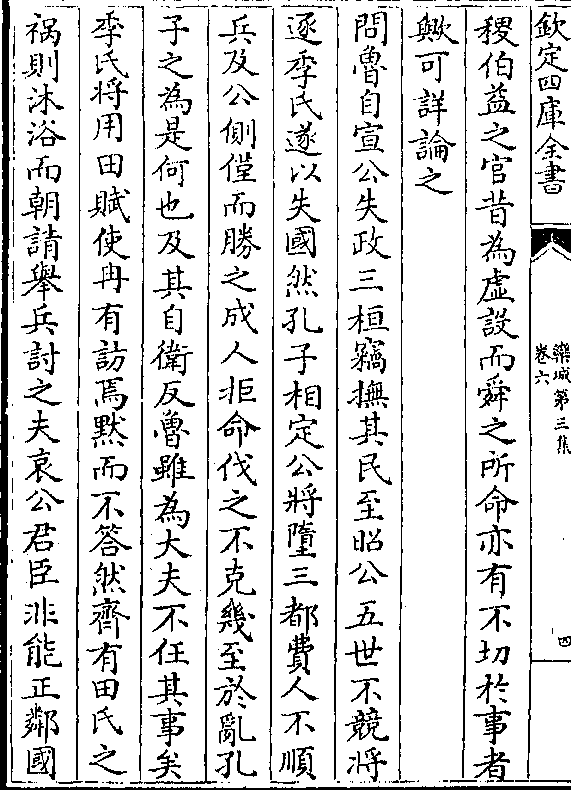 欽定四庫全書
欒城第三集
卷六
四
稷伯益之官昔為虛設而舜之所命亦有不切於事者
歟可詳論之
問魯自宣公失政三桓竊撫其民至昭公五世不競將
逐季氏遂以失國然孔子相定公將墮三都費人不順
兵及公側僅而勝之成人拒命伐之不克幾至於亂孔
子之為是何也及其自衛反魯雖為大夫不任其事矣
季氏將用田賦使冉有訪焉默而不答然齊有田氏之
禍則沐浴而朝請舉兵討之夫哀公君臣非能正鄰國